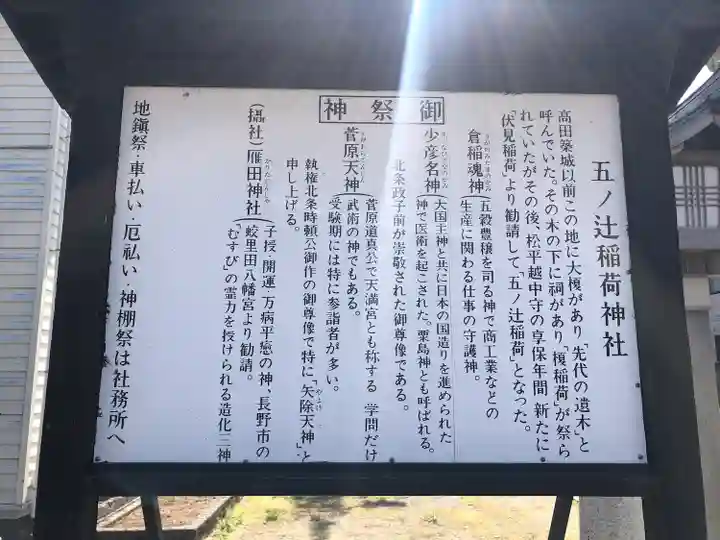 五ノ辻稲荷神社
高田築城以前この地に大榎があり「先代の遺木」と
呼んでいた。その木の下に祠があり「榎稲荷」が祭ら
れていたがその後、松平越中守の享保年間 新たに
「伏見稲荷」より勧請して、「五ノ辻稲荷」となった。
御祭神
倉稲魂神
五穀豊穣を司る神で商工業などの
生産に関わる仕事の守護神。
少彦名神
大国主神と共に日本の国造りを進められた
神で医術を起こされた。粟島神とも呼ばれる。
北条政子前が崇敬された御尊像である。
菅原天神
菅原道真公で天満宮とも称する 学問だけ
武術の神でもある。
受験期には特に参詣者が多い。
執権北条時頼公御作の御尊像で特に「矢除天神」と
申し上げる。
(攝社)雁田神社
子授・開運・万病平癒の神・長野市の
蛟里田八幡宮より勧請。
「むすび」の霊力を授けられる造化三神
地鎮祭・車払い・厄払い・神棚祭は社務所へ